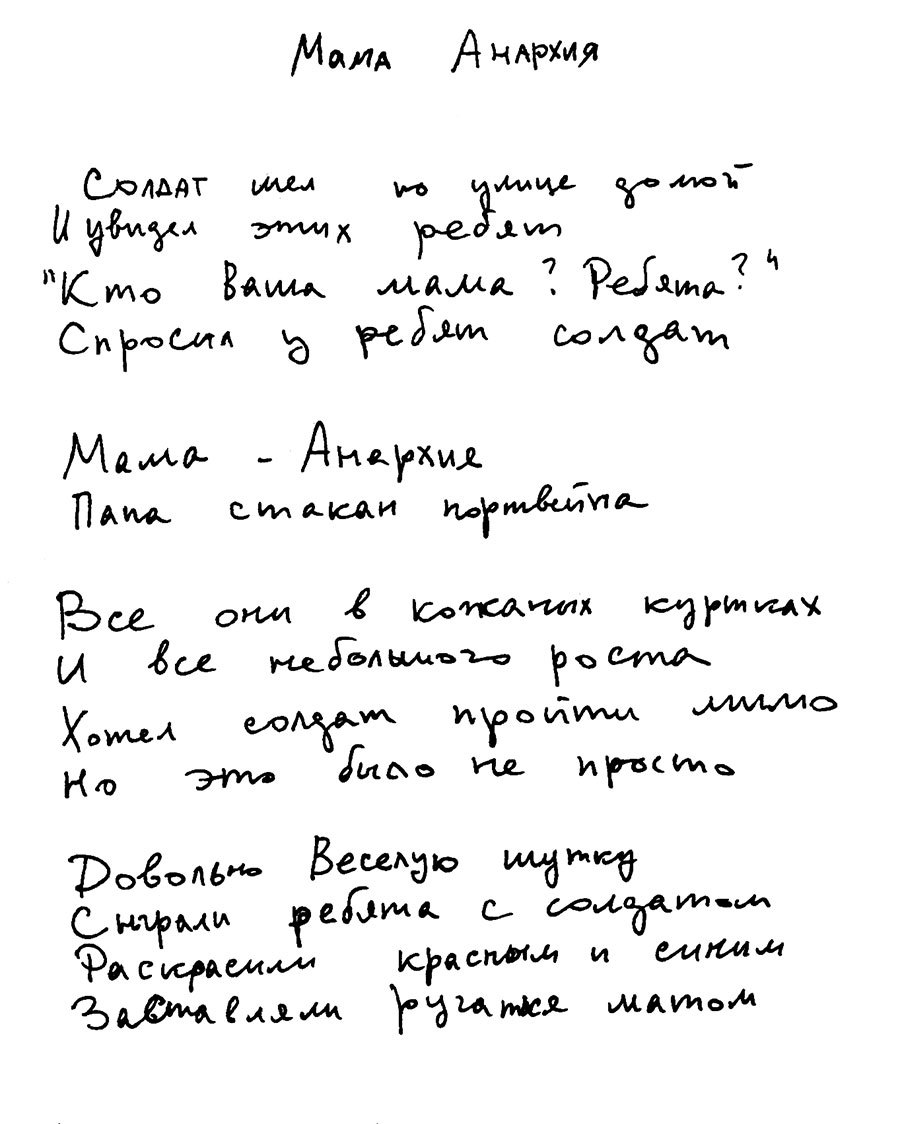 Мама Анархия
Солдат шел по улице домой
И увидел этих ребят
"Кто Ваша мама? Ребята?"
Спросил у ребят солдат
Мама - Анархия
Папа стакан портвейна
Все они в кожаных куртках
И все небольшого роста
Хотел солдат пройти мимо
Но это было не просто
Довольно Веселую шутку
Сыграли ребята с солдатом
Раскрасили красным и синим
Заставляли ругатся матом